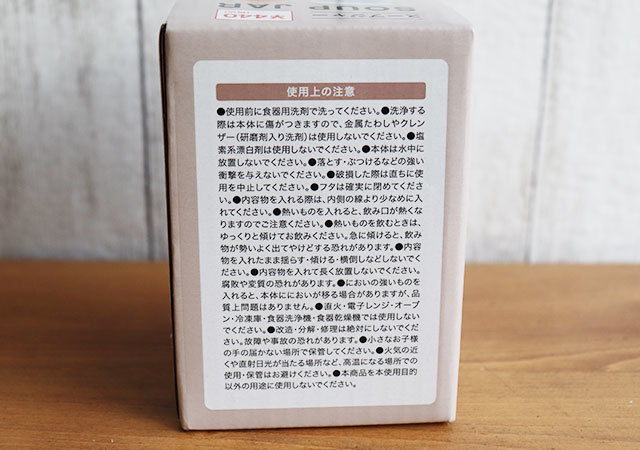 スープジャー
SOUP JAR
¥440
使用上の注意
●使用前に食器用洗剤で洗ってください。●洗浄する
際は本体に傷がつきますので、金属たわしやクレン
ザー(研磨剤入り洗剤)は使用しないでください。●塩
素系漂白剤は使用しないでください。●本体は水中に
放置しないでください。●落とす・ぶつけるなどの強い
衝撃を与えないでください。●破損した際は直ちに使
用を中止してください。●フタは確実に閉めてください。
●内容物を入れる際は、内側の線より少なめに入
れてください。●熱いものを入れると、飲み口が熱くな
りますのでご注意ください。●熱いものを飲むときは、
ゆっくりと傾けてお飲みください。急に傾けると、飲み
物が勢いよく出てやけどする恐れがあります。●内容
物を入れたまま揺らす・傾ける・横倒しなどしないでく
ださい。●内容物を入れて長く放置しないでください。
腐敗や変質の恐れがあります。●においの強いものを
入れると、本体ににおいが移る場合がありますが、品
質上問題はありません。●直火・電子レンジ・オーブ
ン・冷凍庫・食器洗浄機・食器乾燥機では使用しない
でください。●改造・分解・修理は絶対にしないでくだ
さい。故障や事故の恐れがあります。●小さなお子様
の手の届かない場所で保管してください。●火気の近
くや直射日光が当たる場所など、高温になる場所での
使用・保管はお避けください。●本商品を本使用目的
以外の用途に使用しないでください。